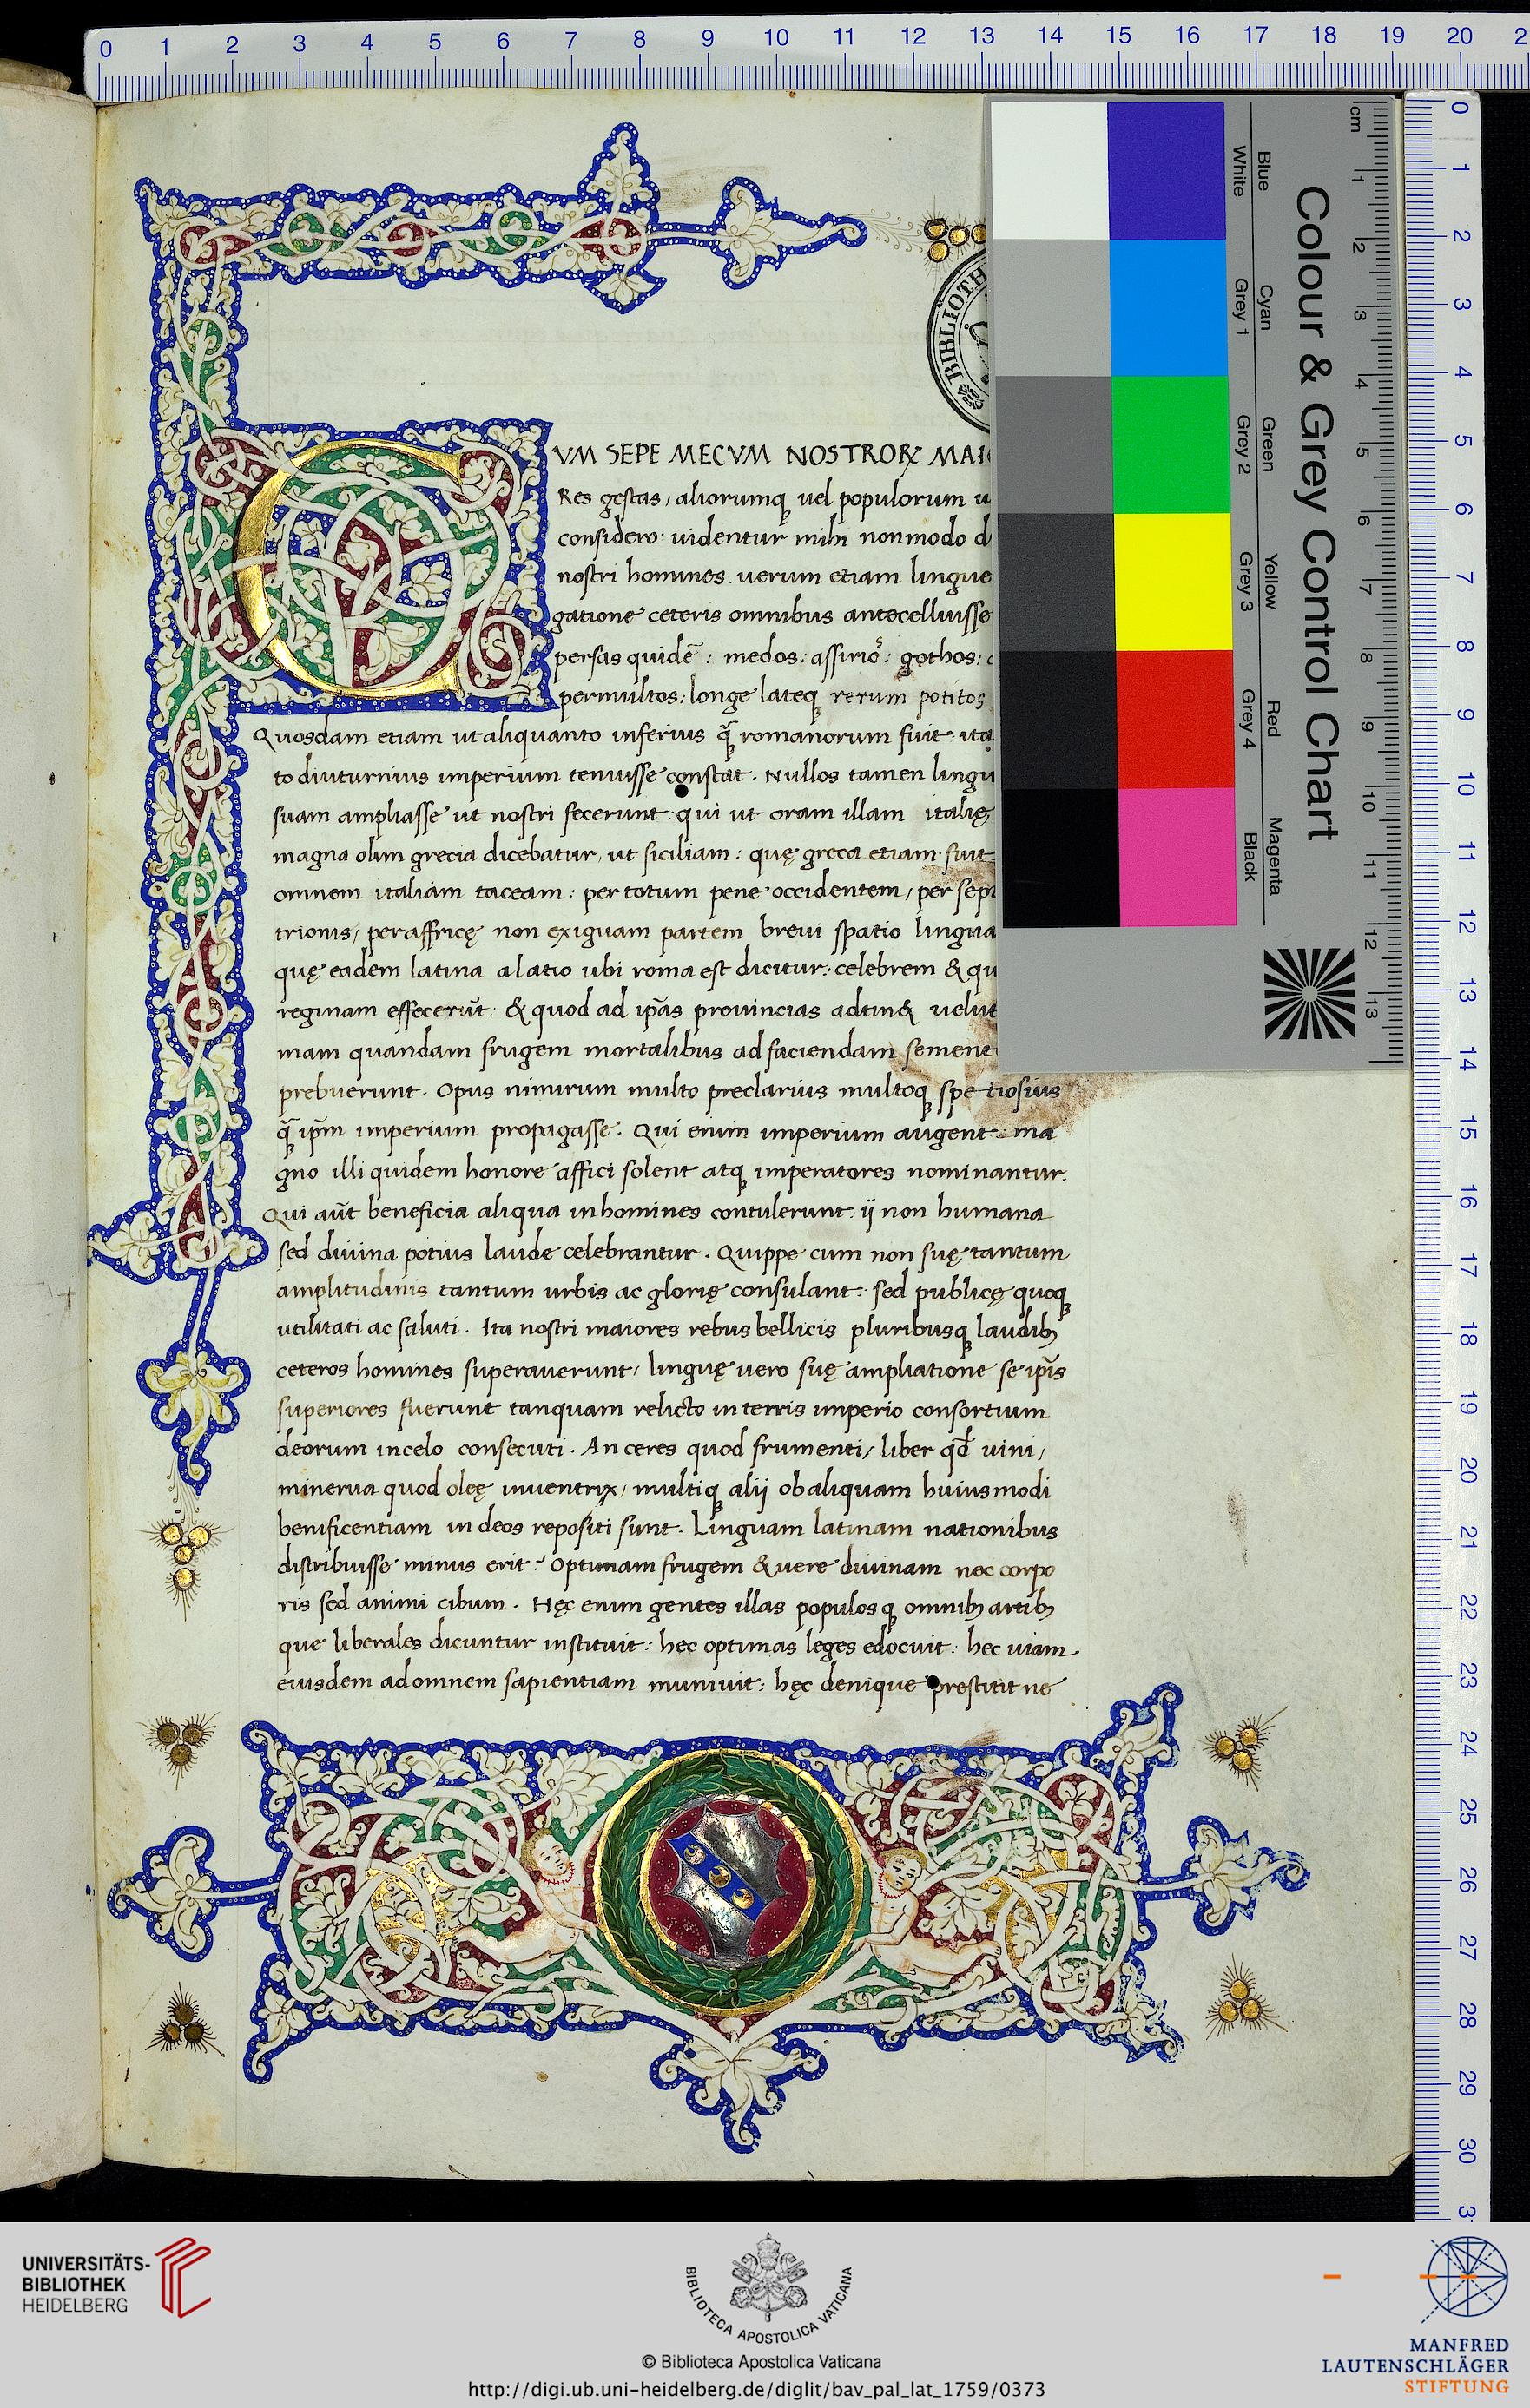 BIBLIOTH
C
VM SEPE MECVM NOSTRORꝜ MAI
Res gestas, aliorumqꝫ uel populorum u
considero: uidentur mihi non modo d
nostri homines: uerum etiam lingue
gatione ceteris omnibus antecelluisse
persas quidē: medos: assirios: gothos:
permultos: longe lateqꝫ rerum potitos
Quosdam etiam ut aliquanto inferius q̄ romanorum fuit: ita
to diuturnius imperium tenuisse constat. Nullos tamen lingu
suam ampliasse ut nostri fecerunt: qui ut oram illam italię
magna olim grecia dicebatur, ut siciliam: quę greca etiam fuit
omnem italiam taceam: per totum pene occidentem, per sept
trionis, per affricę non exiguam partem breui spatio lingua
quę eadem latina a latio ubi roma est dicitur: celebrem & qu
reginam effecerūt: & quod ad ip̄as prouincias adtin& uelut
mam quandam frugem mortalibus ad faciendam sement
prebuerunt. Opus nimirum multo preclarius multoqꝫ spetiosius
q̄ ip̄m imperium propagasse. Qui enim imperium augent: ma
gno illi quidem honore affici solent atqꝫ imperatores nominantur.
Qui aūt beneficia aliqua in homines contulerunt: ij non humana
sed diuina potius laude celebrantur. Quippe cum non suę tantum
amplitudinis tantum urbis ac glorię consulant: sed publicę quoqꝫ
utilitati ac saluti. Ita nostri maiores rebus bellicis pluribusqꝫ laudibꝫ
ceteros homines superauerunt, linguę uero suę ampliatione se ip̄is
superiores fuerunt tanquam relicto in terris imperio consortium
deorum in celo consecuti. An ceres quod frumenti, liber qd̄ uini,
minerua quod oleę inuentrix, multiqꝫ alij ob aliquam huiusmodi
benificentiam in deos repositi sunt. Linguam latinam nationibus
distribuisse minus erit? Optimam frugem & uere diuinam nec corpo
ris sed animi cibum. Hęc enim gentes illas populosqꝫ omnibꝫ artibꝫ
que liberales dicuntur instituit: hec optimas leges edocuit: hec uiam
eiusdem ad omnem sapientiam muniuit: hęc denique prestitit ne
0 1 2 3 4 5 6 7 8 9 10 11 12 13 14 15 16 17 18 19 20 2
0 1 2 3 4 5 6 7 8 9 10 11 12 13 14 15 16 17 18 19 20 21 22 23 24 25 26 27 28 29 30 3
Colour & Grey Control Chart
Blue Cyan Green Yellow Red Magenta
White Grey 1 Grey 2 Grey 3 Grey 4 Black
cm 1 2 3 4 5 6 7 8 9 10 11 12 13
UNIVERSITÄTS-
BIBLIOTHEK
HEIDELBERG
BIBLIOTECA APOSTOLICA VATICANA
© Biblioteca Apostolica Vaticana
http://digi.ub.uni-heidelberg.de/diglit/bav_pal_lat_1759/0373
MANFRED
LAUTENSCHLÄGER
STIFTUNG